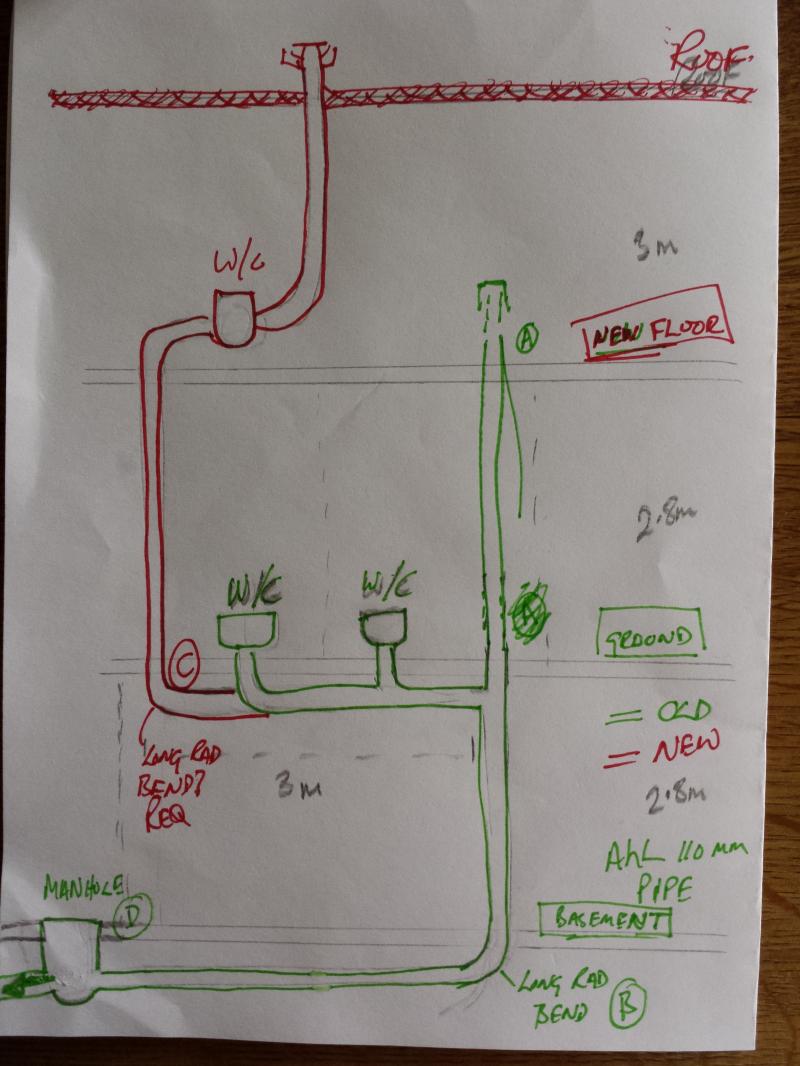 ROOF.
3m
W/C
A
NEW FLOOR
2.8m
W/C
W/C
A
GROUND
C
= OLD
= NEW
LONG RAD
BEND?
REQ
3m
2.8m
ALL 110mm
PIPE
MANHOLE
D
BASEMENT
LONG RAD
BEND B